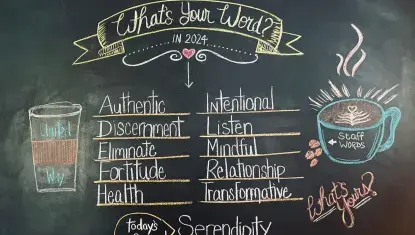 What's Your Word?
IN 2024
Authentic
Discernment
Eliminate
Fortitude
Health
Intentional
Listen
Mindful
Relationship
Transformative
Staff
WORDS
What's
Yours?
today's
Serendipity